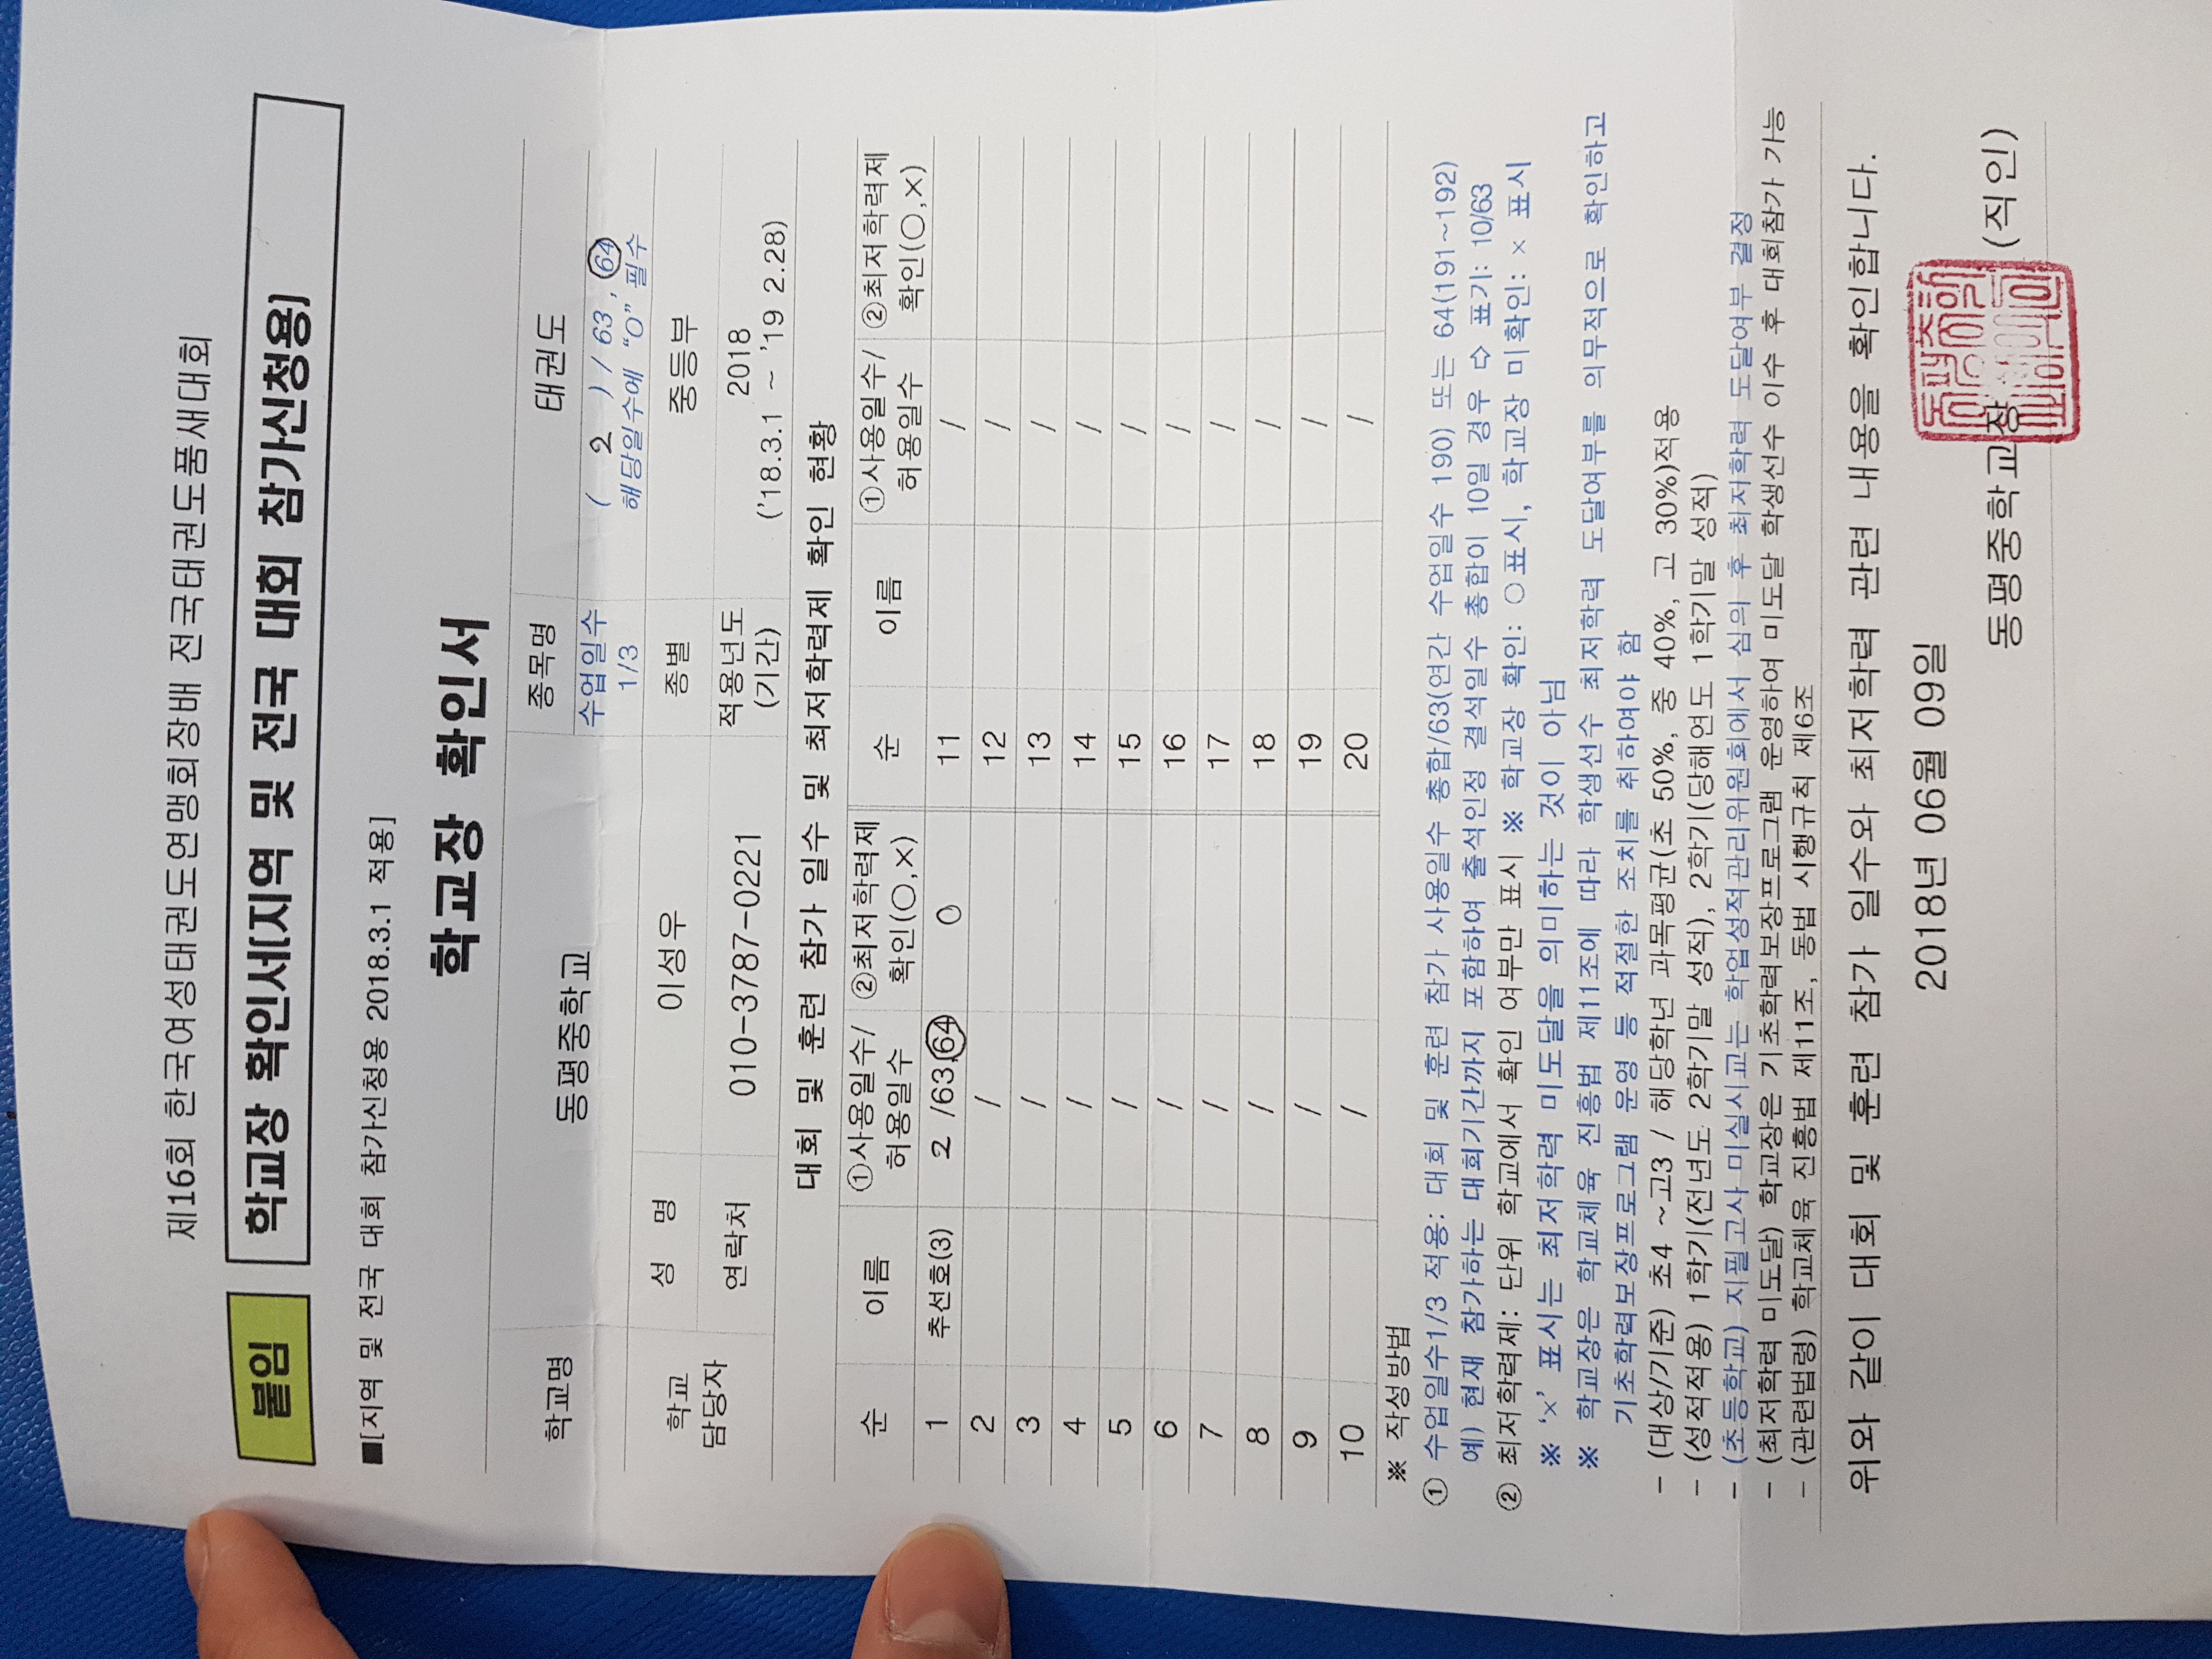 제16회 한국여성태권도연맹회장배 전국태권도품새대회
붙임 학교장 확인서[지역 및 전국 대회 참가신청용]
■[지역 및 전국 대회 참가신청용 2018.3.1 적용]
학교장 확인서
학교명 동평중학교 종목명 태권도
수업일수 1/3 ( 2 ) / 63, 64
해당일수에 "O" 필수
학교 담당자 성 명 이성우 종별 중등부
연락처 010-3787-0221 적용년도 (기간) 2018
('18.3.1 ~ '19 2.28)
대회 및 훈련 참가 일수 및 최저학력제 확인 현황
순 이름 ①사용일수/허용일수 ②최저학력제 확인(○,×) 순 이름 ①사용일수/허용일수 ②최저학력제 확인(○,×)
1 추선호(3) 2 /63,64 O 11 /
2 / 12 /
3 / 13 /
4 / 14 /
5 / 15 /
6 / 16 /
7 / 17 /
8 / 18 /
9 / 19 /
10 / 20 /
※ 작성방법
① 수업일수1/3 적용: 대회 및 훈련 참가 사용일수 총합/63(연간 수업일수 190) 또는 64(191~192)
예) 현재 참가하는 대회기간까지 포함하여 출석인정 결석일수 총합이 10일 경우 ⇨ 표기: 10/63
② 최저학력제: 단위 학교에서 확인 여부만 표시 ※ 학교장 확인: ○표시, 학교장 미확인: × 표시
※ '×' 표시는 최저학력 미도달을 의미하는 것이 아님
※ 학교장은 학교체육 진흥법 제11조에 따라 학생선수 최저학력 도달여부를 의무적으로 확인하고
기초학력보장프로그램 운영 등 적절한 조치를 취하여야 함
- (대상/기준) 초4 ~고3 / 해당학년 과목평균(초 50%, 중 40%, 고 30%)적용
- (성적적용) 1학기(전년도 2학기말 성적), 2학기(당해연도 1학기말 성적)
- (초등학교) 지필고사 미실시교는 학업성적관리위원회에서 심의 후 최저학력 도달여부 결정
- (최저학력 미도달) 학교장은 기초학력보장프로그램 운영하여 미도달 학생선수 이수 후 대회참가 가능
- (관련법령) 학교체육 진흥법 제11조, 동법 시행규칙 제6조
위와 같이 대회 및 훈련 참가 일수와 최저학력 관련 내용을 확인합니다.
2018년 06월 09일
동평중학교장 (직인)